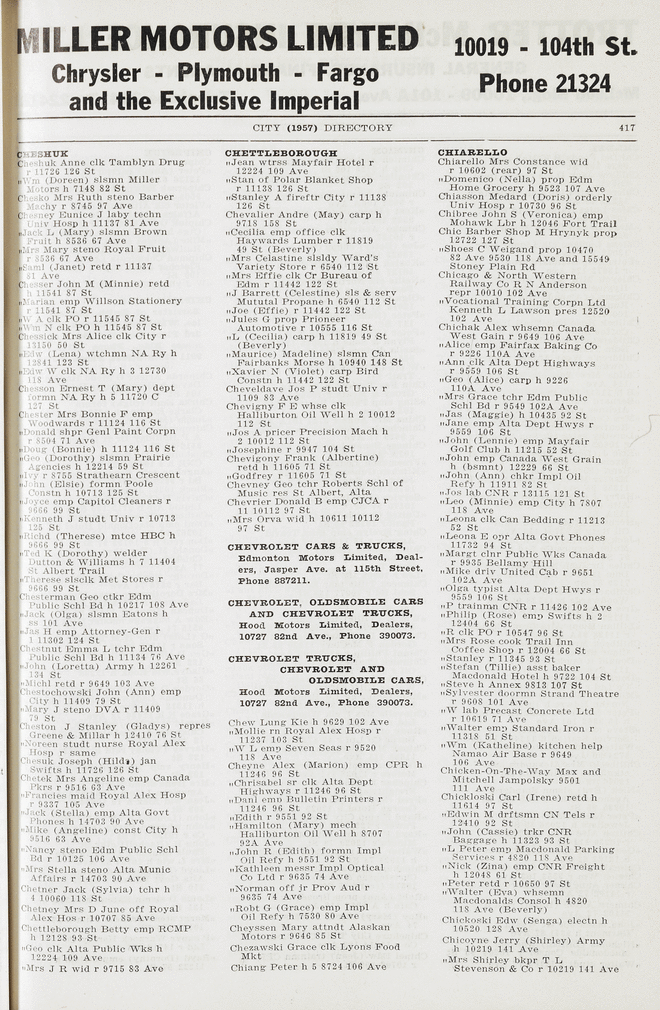 MILLER MOTORS LIMITED
Chrysler - Plymouth - Fargo
and the Exclusive Imperial
10019 - 104th St.
Phone 21324
CITY (1957) DIRECTORY 417
CHESHUK
Cheshuk Anne clk Tamblyn Drug
r 11726 126 St
„Wm (Doreen) slsmn Miller
Motors h 7148 82 St
Chesko Mrs Ruth steno Barber
Machy r 8745 97 Ave
Chesney Eunice J laby techn
Univ Hosp h 11137 81 Ave
„Jack L (Mary) slsmn Brown
Fruit h 8536 67 Ave
„Mrs Mary steno Royal Fruit
r 8536 67 Ave
„Saml (Janet) retd r 11137
81 Ave
Chesser John M (Minnie) retd
h 11541 87 St
„Marian emp Willson Stationery
r 11541 87 St
„W A clk PO r 11545 87 St
„Wm N clk PO h 11545 87 St
Chessick Mrs Alice clk City r
13150 50 St
„Edw (Lena) wtchmn NA Ry h
12841 123 St
„Edw W clk NA Ry h 3 12730
118 Ave
Chesson Ernest T (Mary) dept
formn NA Ry h 5 11720 C
127 St
Chester Mrs Bonnie F emp
Woodwards r 11124 116 St
„Donald shpr Genl Paint Corpn
r 8504 71 Ave
„Doug (Bonnie) h 11124 116 St
„Geo (Dorothy) slsmn Prairie
Agencies h 12214 59 St
„Ivy r 8755 Strathearn Crescent
„John (Elsie) formn Poole
Constn h 10713 125 St
„Joyce emp Capitol Cleaners r
9666 99 St
„Kenneth J studt Univ r 10713
125 St
„Richd (Therese) mtce HBC h
9666 99 St
„Ted K (Dorothy) welder
Dutton & Williams h 7 11404
St Albert Trail
„Therese slsclk Met Stores r
9666 99 St
Chesterman Geo ctkr Edm
Public Schl Bd h 10217 108 Ave
„Jack (Olga) slsmn Eatons h
ss 101 Ave
„Jas H emp Attorney-Gen r
1 11302 124 St
Chestnut Emma L tchr Edm
Public Schl Bd h 11134 76 Ave
„John (Loretta) Army h 12261
134 St
„Michl retd r 9649 103 Ave
Chestochowski John (Ann) emp
City h 11409 79 St
„Mary J steno DVA r 11409
79 St
Cheston J Stanley (Gladys) repres
Greene & Millar h 12410 76 St
„Noreen studt nurse Royal Alex
Hosp r same
Chesuk Joseph (Hilda) jan
Swifts h 11726 126 St
Chetek Mrs Angeline emp Canada
Pkrs r 9516 63 Ave
„Francies maid Royal Alex Hosp
r 9337 105 Ave
„Jack (Stella) emp Alta Govt
Phones h 14703 90 Ave
„Mike (Angeline) const City h
9516 63 Ave
„Nancy steno Edm Public Schl
Bd r 10125 106 Ave
„Mrs Stella steno Alta Munic
Affairs r 14703 90 Ave
Chetner Jack (Sylvia) tchr h
4 10060 118 St
Chetney Mrs D June off Royal
Alex Hos r 10707 85 Ave
Chettleborough Betty emp RCMP
h 12128 93 St
„Geo clk Alta Public Wks h
12224 109 Ave
„Mrs J R wid r 9715 83 Ave
CHETTLEBOROUGH
„Jean wtrss Mayfair Hotel r
12224 109 Ave
„Stan of Polar Blanket Shop
r 11138 126 St
„Stanley A fireftr City r 11138
126 St
Chevalier Andre (May) carp h
9718 158 St
„Cecilia emp office clk
Haywards Lumber r 11819
49 St (Beverly)
„Mrs Celastine slsldy Ward's
Variety Store r 6540 112 St
„Mrs Effie clk Cr Bureau of
Edm r 11442 122 St
„J Barrett (Celestine) sls & serv
Mututal Propane h 6540 112 St
„Joe (Effie) r 11442 122 St
„Jules G prop Prioneer
Automotive r 10555 116 St
„L (Cecilia) carp h 11819 49 St
(Beverly)
„Maurice) Madeline) slsmn Can
Fairbanks Morse h 10940 148 St
„Xavier N (Violet) carp Bird
Constn h 11442 122 St
Cheveldave Jos P studt Univ r
1109 83 Ave
Chevigny F E whse clk
Halliburton Oil Well h 2 10012
112 St
„Jos A pricer Precision Mach h
2 10012 112 St
„Josephine r 9947 104 St
Chevigony Frank (Albertine)
retd h 11605 71 St
„Godfrey r 11605 71 St
Chevney Geo tchr Roberts Schl of
Music res St Albert, Alta
Chevrier Donald B emp CJCA r
11 10112 97 St
„Mrs Orva wid h 10611 10112
97 St
CHEVROLET CARS & TRUCKS,
Edmonton Motors Limited, Deal-
ers, Jasper Ave. at 115th Street,
Phone 887211.
CHEVROLET, OLDSMOBILE CARS
AND CHEVROLET TRUCKS,
Hood Motors Limited, Dealers,
10727 82nd Ave., Phone 390073.
CHEVROLET TRUCKS,
CHEVROLET AND
OLDSMOBILE CARS,
Hood Motors Limited, Dealers,
10727 82nd Ave., Phone 390073.
Chew Lung Kie h 9629 102 Ave
„Mollie rn Royal Alex Hosp r
11237 103 St
„W L emp Seven Seas r 9520
118 Ave
Cheyne Alex (Marion) emp CPR h
11246 96 St
„Chrisabel sr clk Alta Dept
Highways r 11246 96 St
„Danl emp Bulletin Printers r
11246 96 St
„Edith r 9551 92 St
„Hamilton (Mary) mech
Halliburton Oil Well h 8707
92A Ave
„John R (Edith) formn Impl
Oil Refy h 9551 92 St
„Kathleen messr Impl Optical
Co Ltd r 9635 74 Ave
„Norman off jr Prov Aud r
9635 74 Ave
„Robt G (Grace) emp Impl
Oil Refy h 7530 80 Ave
Cheyssen Mary attndt Alaskan
Motors r 9646 85 St
Chezawski Grace clk Lyons Food
Mkt
Chiang Peter h 5 8724 106 Ave
CHIARELLO
Chiarello Mrs Constance wid
r 10602 (rear) 97 St
„Domenico (Nella) prop Edm
Home Grocery h 9523 107 Ave
Chiasson Medard (Doris) orderly
Univ Hosp r 10730 96 St
Chibree John S (Veronica) emp
Mohawk Lbr h 12046 Fort Trail
Chic Barber Shop M Hrynyk prop
12722 127 St
„Shoes C Weigand prop 10470
82 Ave 9530 118 Ave and 15549
Stoney Plain Rd
Chicago & North Western
Railway Co R N Anderson
repr 10010 102 Ave
„Vocational Training Corpn Ltd
Kenneth L Lawson pres 12520
102 Ave
Chichak Alex whsemn Canada
West Gain r 9649 106 Ave
„Alice emp Fairfax Baking Co
r 9226 110A Ave
„Ann clk Alta Dept Highways
r 9559 106 St
„Geo (Alice) carp h 9226
110A Ave
„Mrs Grace tchr Edm Public
Schl Bd r 9549 102A Ave
„Jas (Maggie) h 10435 92 St
„Jane emp Alta Dept Hwys r
9559 106 St
„John (Lennie) emp Mayfair
Golf Club h 11215 52 St
„John emp Canada West Grain
h (bsmnt) 12229 66 St
„John (Ann) chkr Impl Oil
Refy h 11911 82 St
„Jos lab CNR r 13115 121 St
„Leo (Minnie) emp City h 7807
118 Ave
„Leona clk Can Bedding r 11213
52 St
„Leona E opr Alta Govt Phones
11732 94 St
„Margt clnr Public Wks Canada
r 9935 Bellamy Hill
„Mike driv United Cab r 9651
102A Ave
„Olga typist Alta Dept Hwys r
9559 106 St
„P trainmn CNR r 11426 102 Ave
„Philip (Rose) emp Swifts h 2
12404 66 St
„R clk PO r 10547 96 St
„Mrs Rose cook Trail Inn
Coffee Shop r 12004 66 St
„Stanley r 11345 93 St
„Stefan (Tillie) asst baker
Macdonald Hotel h 9722 104 St
„Steve h Annex 9813 107 St
„Sylvester doormn Strand Theatre
r 9608 101 Ave
„W lab Precast Concrete Ltd
r 10619 71 Ave
„Walter emp Standard Iron r
11318 51 St
„Wm (Katheline) kitchen help
Namao Air Base r 9649
106 Ave
Chicken-On-The-Way Max and
Mitchell Jampolsky 9501
111 Ave
Chickloski Carl (Irene) retd h
11614 97 St
„Edwin M drftsmn CN Tels r
12410 92 St
„John (Cassie) trkr CNR
Baggage h 11323 93 St
„L Peter emp Macdonald Parking
Services r 4820 118 Ave
„Nick (Zina) emp CNR Freight
h 12048 61 St
„Peter retd r 10650 97 St
„Walter (Eva) whsemn
Macdonalds Consol h 4820
118 Ave (Beverly)
Chickoski Edw (Senga) electn h
10520 128 Ave
Chicoyne Jerry (Shirley) Army
h 10219 141 Ave
„Mrs Shirley bkpr T L
Stevenson & Co r 10219 141 Ave